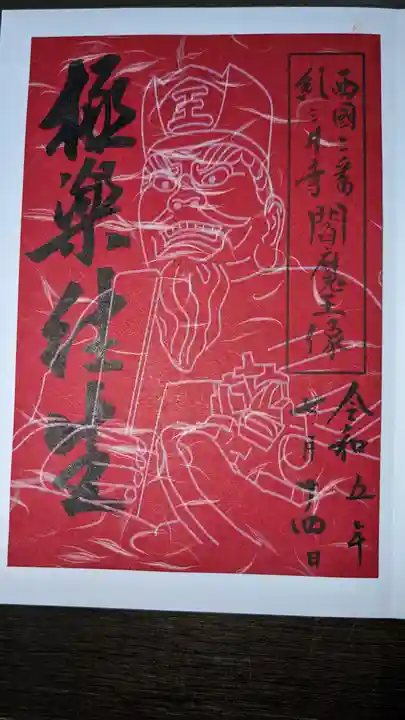 西國二番
紀三井寺 閻魔王像
令和五年
六月廿四日
極楽往生
王